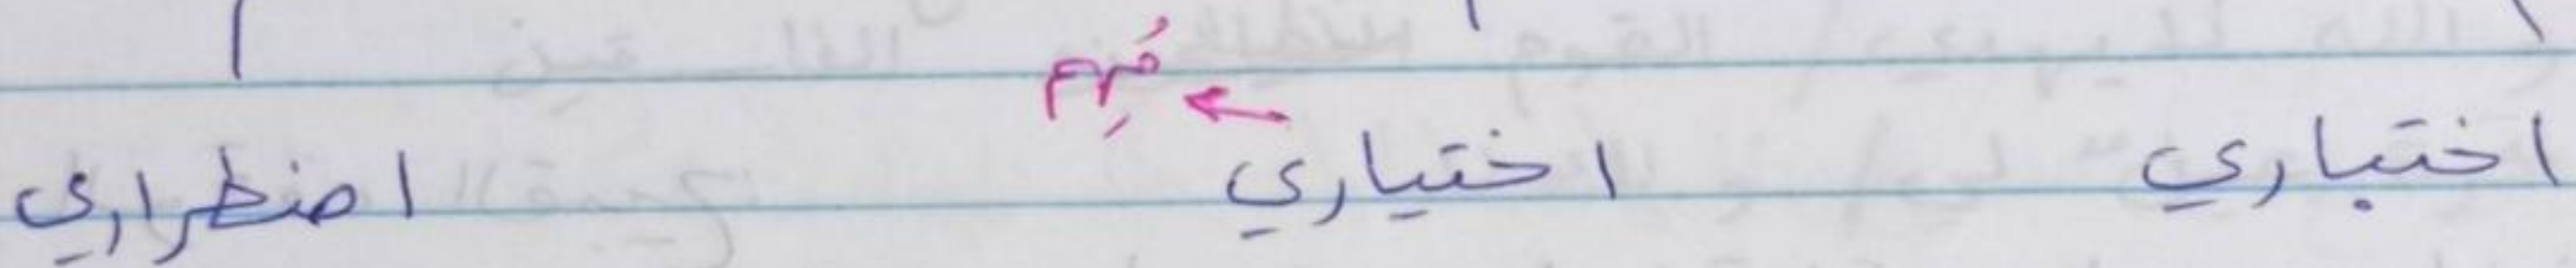 اختباري اختياري ← اضطراري